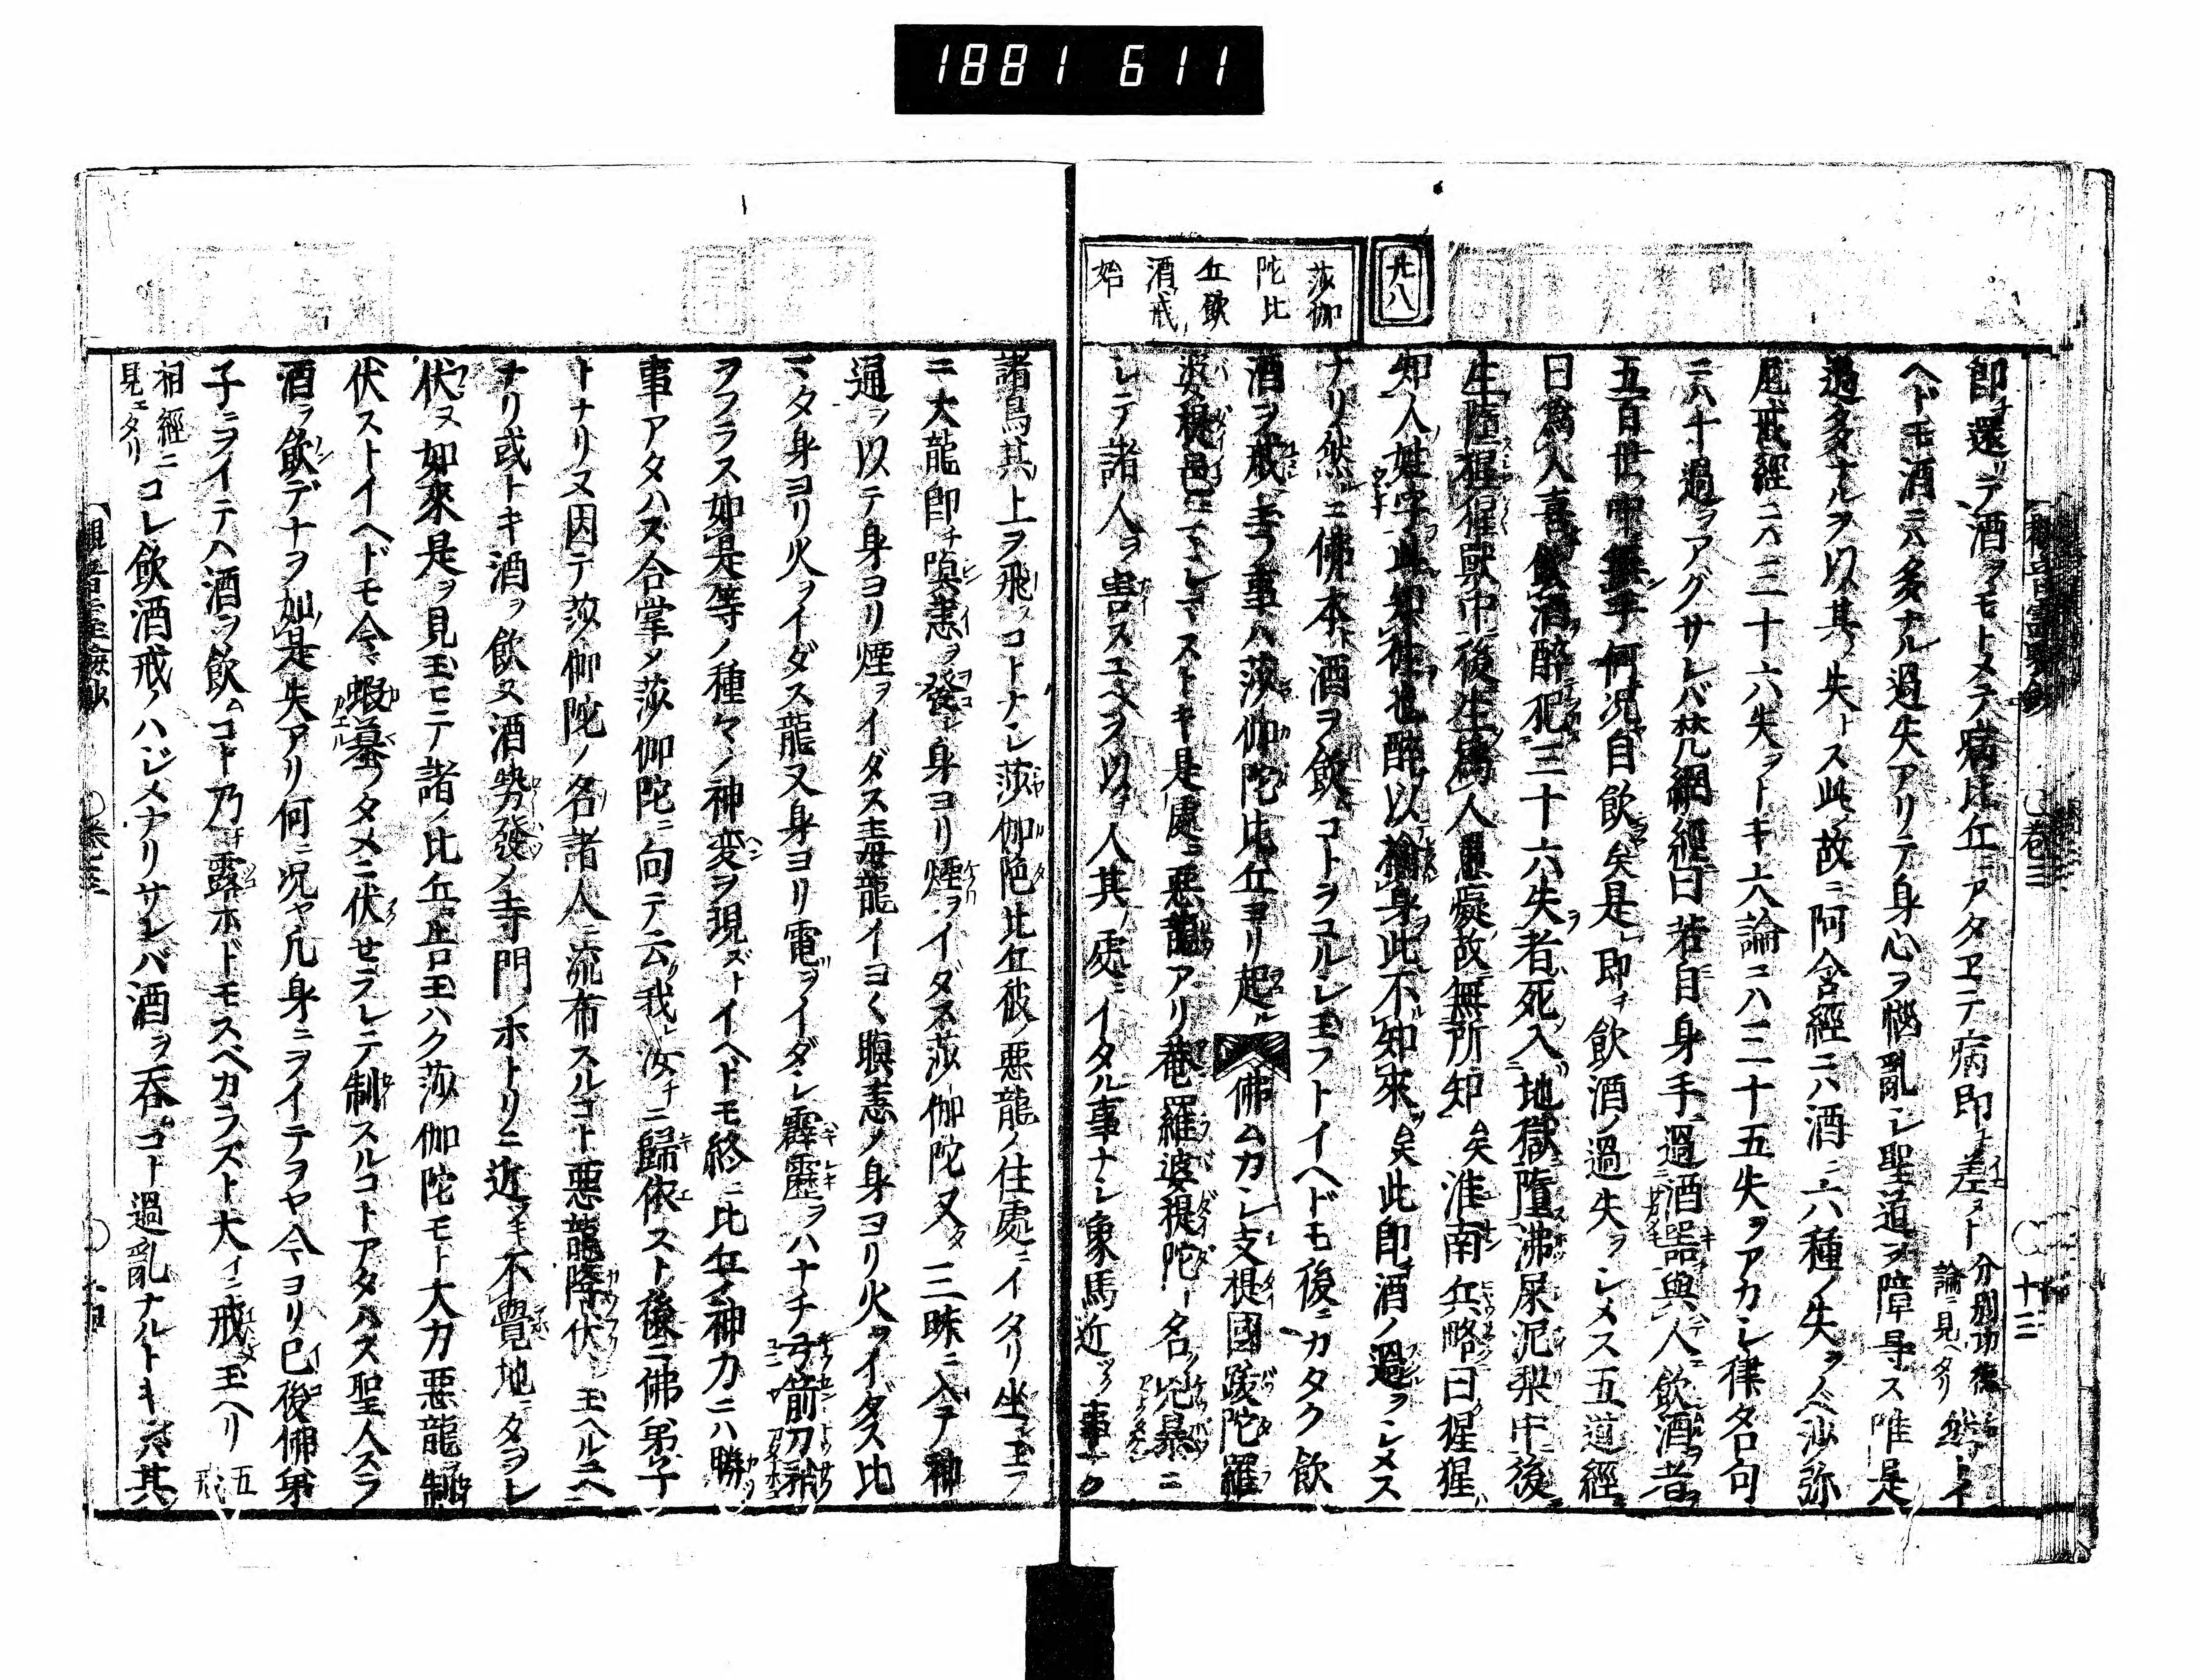 1881 611
廿八
莎伽
陀比
丘飲
酒戒
始
即還リテ酒ヲモトメテ病比丘ニアタヱテ病即チ差ヌト分別功德論ニ見ヘタリ然トイ
ヘドモ酒ニハ多ナル過失アリテ身心ヲ惱亂シ聖道ヲ障㝵ス唯是
過多ナルヲ以其ノ失トス此故ニ阿含經ニハ酒ニ六種ノ失ヲノベ沙弥
尼戒經ニハ三十六失ヲトキ大論ニハ三十五失ヲアカシ律名句
ニハ十過ヲアグサレバ梵網經曰若自身手過酒器與人飲酒者
五百世中無手何況自飲矣是即チ飲酒ノ過失ヲシメス五道經
曰為人喜飲酒醉犯三十六失者死入地獄墮沸屎泥犁中後
生墮猩猩獸中後生為人愚癡故無所知矣淮南兵略曰猩猩
知人姓字此知往也醉以擒身此不知來矣此即酒ノ過ヲシメス
ナリ然ニ佛本ト酒ヲ飲コトヲユルシ玉フトイヘドモ後ニカタク飲
酒ヲ戒玉フ事ハ莎伽陀比丘ヨリ起ル佛ムカシ支提國跋陀羅
婆提邑ニマシマストキ是處ニ惡龍アリ菴羅婆提陀ト名ク兇暴ニ
シテ諸人ヲ害スユヘヲ以テ人其ノ處ニイタル事ナシ象馬近ヅク事ナク
諸鳥其上ヲ飛ブコトナシ莎伽陀比丘彼ノ惡龍ノ住處ニイタリ坐シ玉フ
ニ大龍即チ嗔恚ヲ發シ身ヨリ煙ヲイダス莎伽陀又タ三昧ニ入テ神
通ヲ以テ身ヨリ煙ヲイダス毒龍イヨ〱瞋恚ノ身ヨリ火ヲイダス比
マタ身ヨリ火ヲイダス龍又身ヨリ電ヲイダシ霹靂ヲハナチ弓箭刀矟
ヲフラス如是等ノ種々ノ神変ヲ現ズトイヘドモ終ニ比丘ノ神力ニハ勝
事アタハス合掌メ莎伽陀ニ向テ云ク我レ汝チニ歸依スト後ニ佛弟子
トナリ又因テ莎伽陀ノ名諸人ニ流布スルコト惡龍降伏シ玉ヘルユヘ
ナリ或トキ酒ヲ飲ヌ酒勢發メ寺門ノホトリニ近ヅキ不覺地ニタヲレ
伏ヌ如來是ヲ見玉ヒテ諸ノ比丘ニ告ロ玉ハク莎伽陀モト大力惡龍ヲ制
伏ストイヘドモ今マ蝦蟇ノタメニ伏セラレテ制スルコトアタハズ聖人スラ
酒ヲ飲デナヲ如是失アリ何ニ況ヤ凡身ニヲイテヲヤ今マヨリ已後佛弟
子ニヲイテハ酒ヲ飲ムコト乃チ露ホドモスベカラズト大イニ戒玉ヘリ五戒
相經ニ見エタリコレ飲酒戒ノハジメナリサレバ酒ヲ呑コト過亂ナルトキンバ其